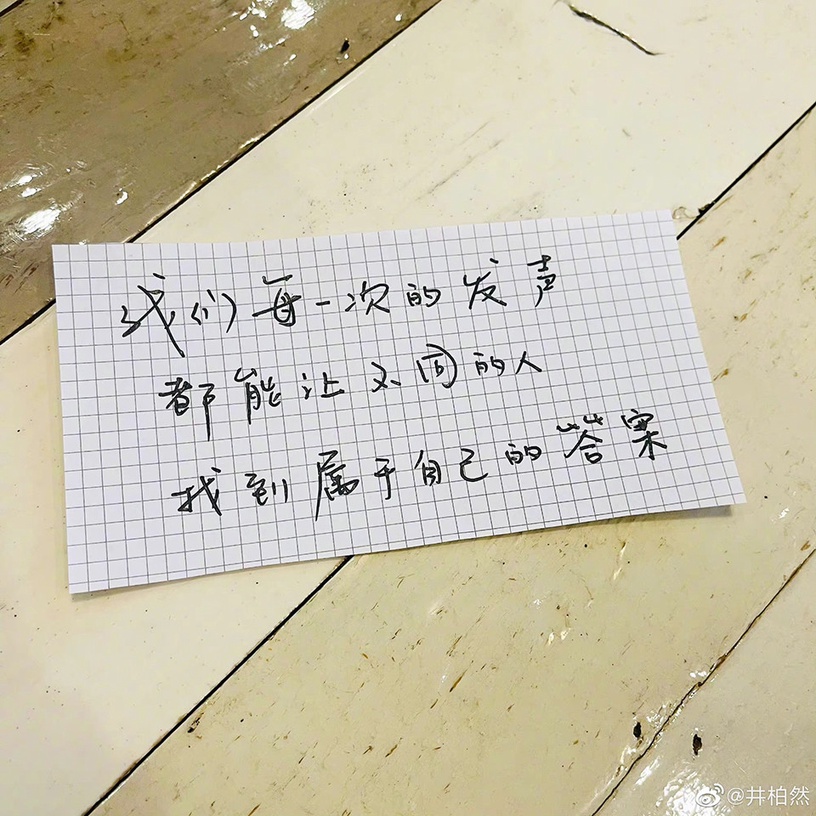 我们每一次的发声
都能让不同的人
找到属于自己的答案
@井柏然